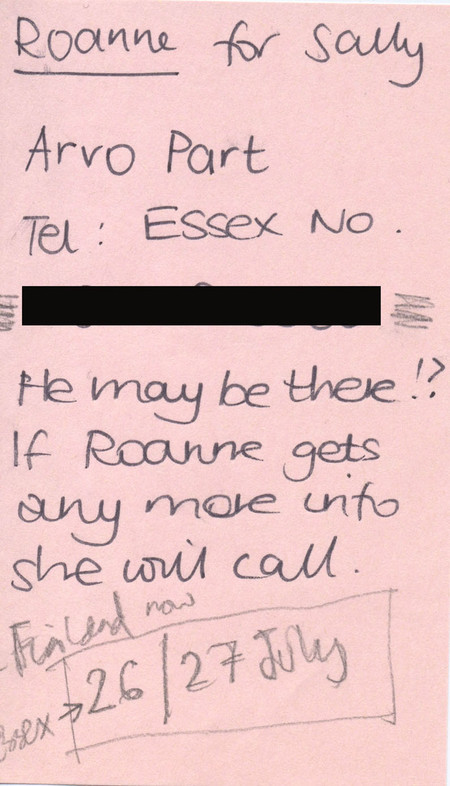 Roanne for Sally
Arvo Part
Tel: Essex No.
He may be there!?
If Roanne gets
any more info
she will call.
Finland now
Essex → 26 | 27 July